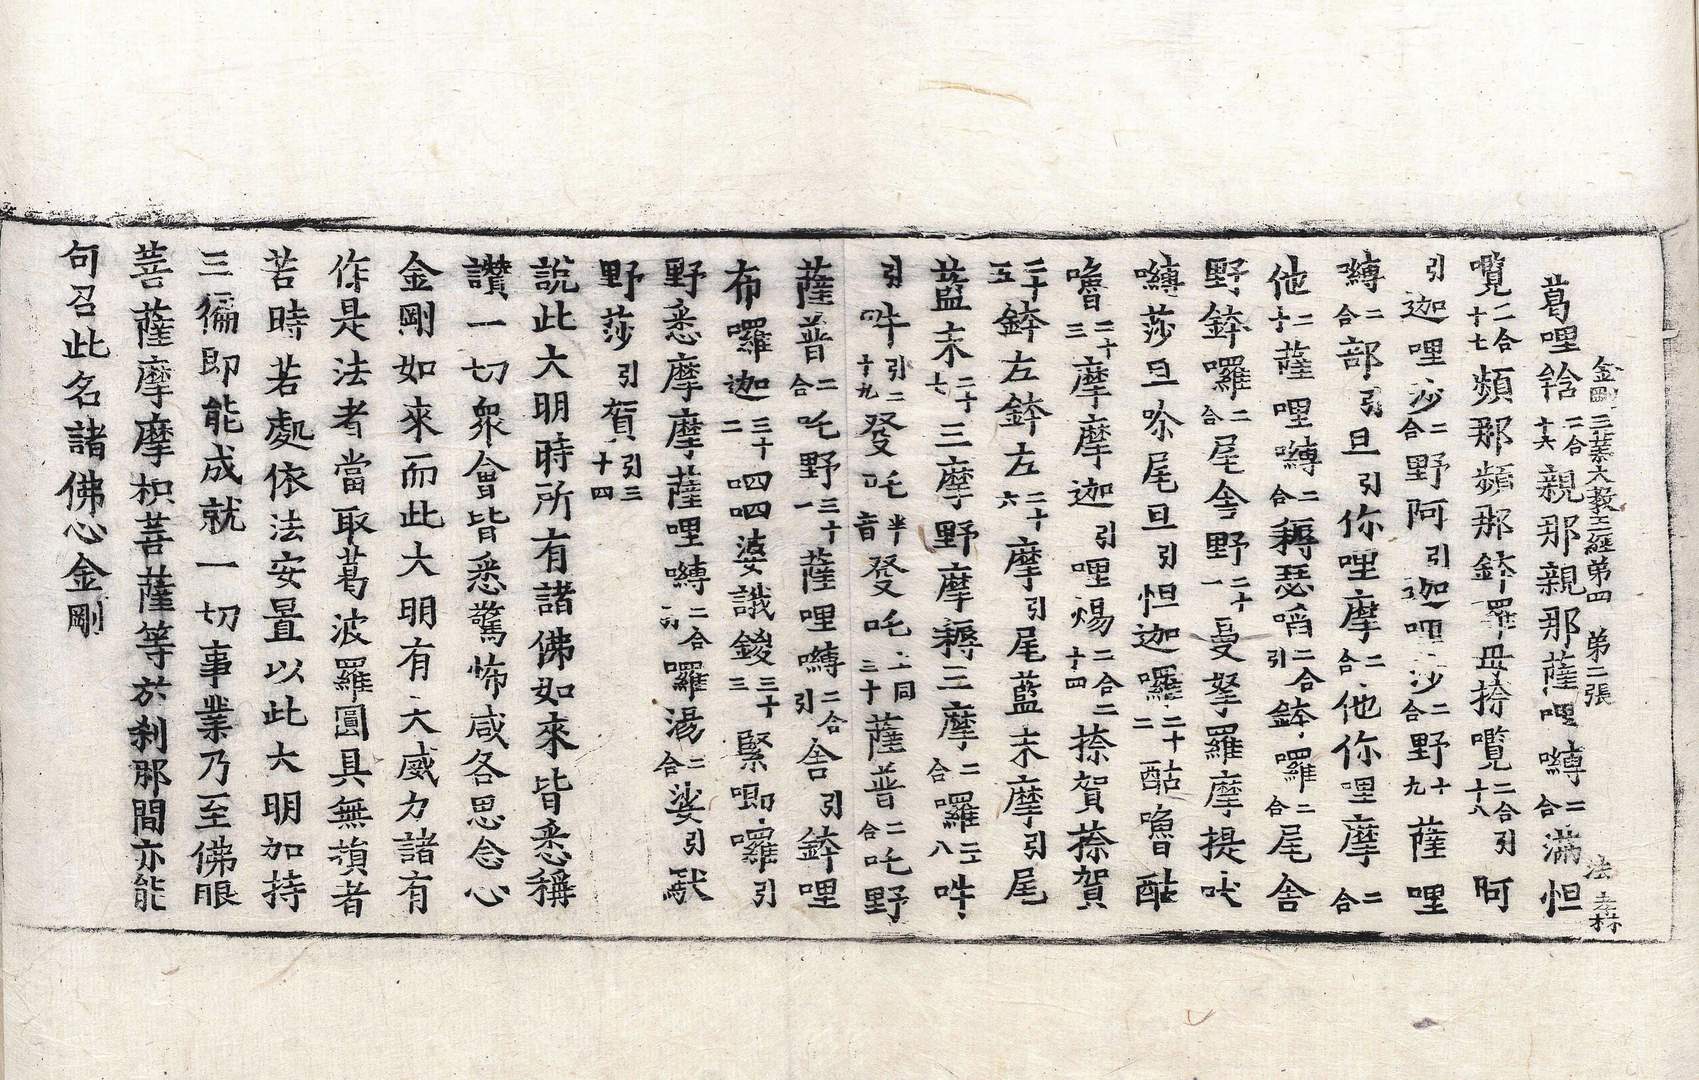 金剛三葉大教王經第四　第二張　法　森
葛哩錎二合十六親那親那薩哩嚩二合滿怛
囕二合十七頻那頻那鉢羅毋捺囕二合引十八阿
引迦哩沙二合野阿引迦哩沙二合野十九薩哩
嚩二合部引旦引你哩摩二合他你哩摩二合
他二十薩哩嚩二合耨瑟㗚二合引鉢囉二合尾舍
野鉢囉二合尾舍野二十一曼拏羅摩提吠
嚩莎旦尒尾旦引怛迦囉二十二酤嚕酤
嚕二十三摩摩迦引哩煬二合二十四捺賀捺賀
二十五鉢左鉢左二十六摩引尾藍末摩引尾
藍末二十七三摩野摩耨三摩二合囉二十八吽
引吽引二十九癹吒半音癹吒上同三十薩普二合吒野
薩普二合吒野三十一薩哩嚩二合引舍引鉢哩
布囉迦三十二呬呬婆誐鍐三十三緊唧囉引
野悉摩摩薩哩嚩二合引囉湯二合娑引馱
野莎引賀引三十四
說此大明時所有諸佛如來皆悉稱
讚一切衆會皆悉驚怖咸各思念心
金剛如來而此大明有大威力諸有
作是法者當取葛波羅圓具無損者
若時若處依法安置以此大明加持
三徧即能成就一切事業乃至佛眼
菩薩摩摩枳菩薩等於刹那間亦能
句召此名諸佛心金剛